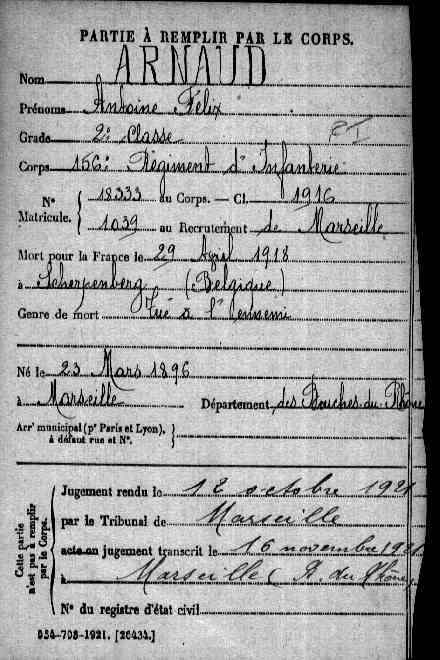 PARTIE À REMPLIR PAR LE CORPS.
Nom ARNAUD
Prénoms Antoine Félix
Grade 2e Classe R I
Corps 156e Régiment d'Infanterie
N° Matricule. { 18333 au Corps. — Cl. 1916
1039 au Recrutement de Marseille
Mort pour la France le 29 Avril 1918
à Scherpenberg (Belgique)
Genre de mort Tué à l'ennemi
Né le 23 Mars 1896
à Marseille Département des Bouches-du-Rhône
Arrt municipal (pr Paris et Lyon), à défaut rue et N°. }
Cette partie n'est pas à remplir par le Corps.
Jugement rendu le 12 octobre 1921
par le Tribunal de Marseille
acte ou jugement transcrit le 16 novembre 1921
à Marseille (B. du Rhône)
N° du registre d'état civil
534-708-1921. [26434.]